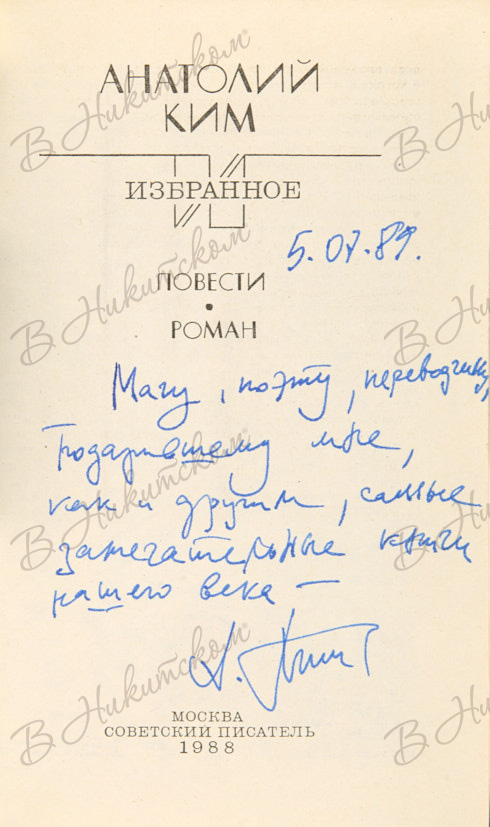 АНАТОЛИЙ
КИМ
ИЗБРАННОЕ
5.07.89.
ПОВЕСТИ
•
РОМАН
Магу, поэту, переводчику,
подарившему мне,
как и другим, самые
замечательные книги
нашего века —
А. Ким
МОСКВА
СОВЕТСКИЙ ПИСАТЕЛЬ
1988
В Никитском
В Никитском
В Никитском
В Никитском
В Никитском
В Никитском
В Никитском
В Никитском